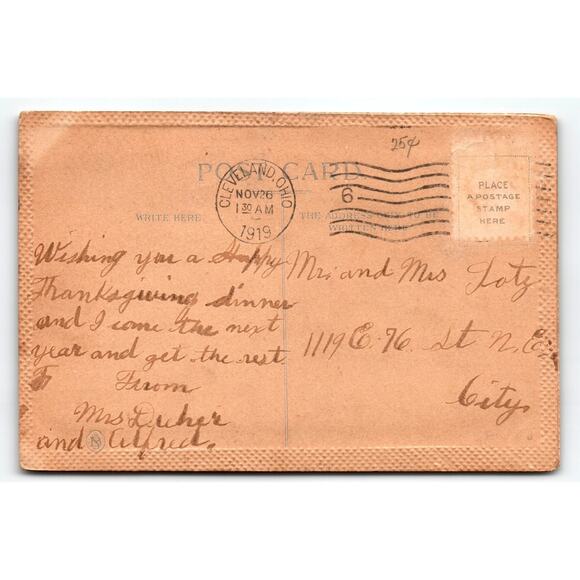 25¢
POST CARD
CLEVELAND, OHIO
NOV 26
1 30 AM
1919
6
PLACE
A POSTAGE
STAMP
HERE
WRITE HERE
THE ADDRESS ONLY TO BE
WRITTEN HERE
Wishing you a Happy
Thanksgiving dinner
and I come the next
year and get the rest
From
Mrs
and Alfred.
Mr. and Mrs Lotz
1119 E. 76. St N. E.
City